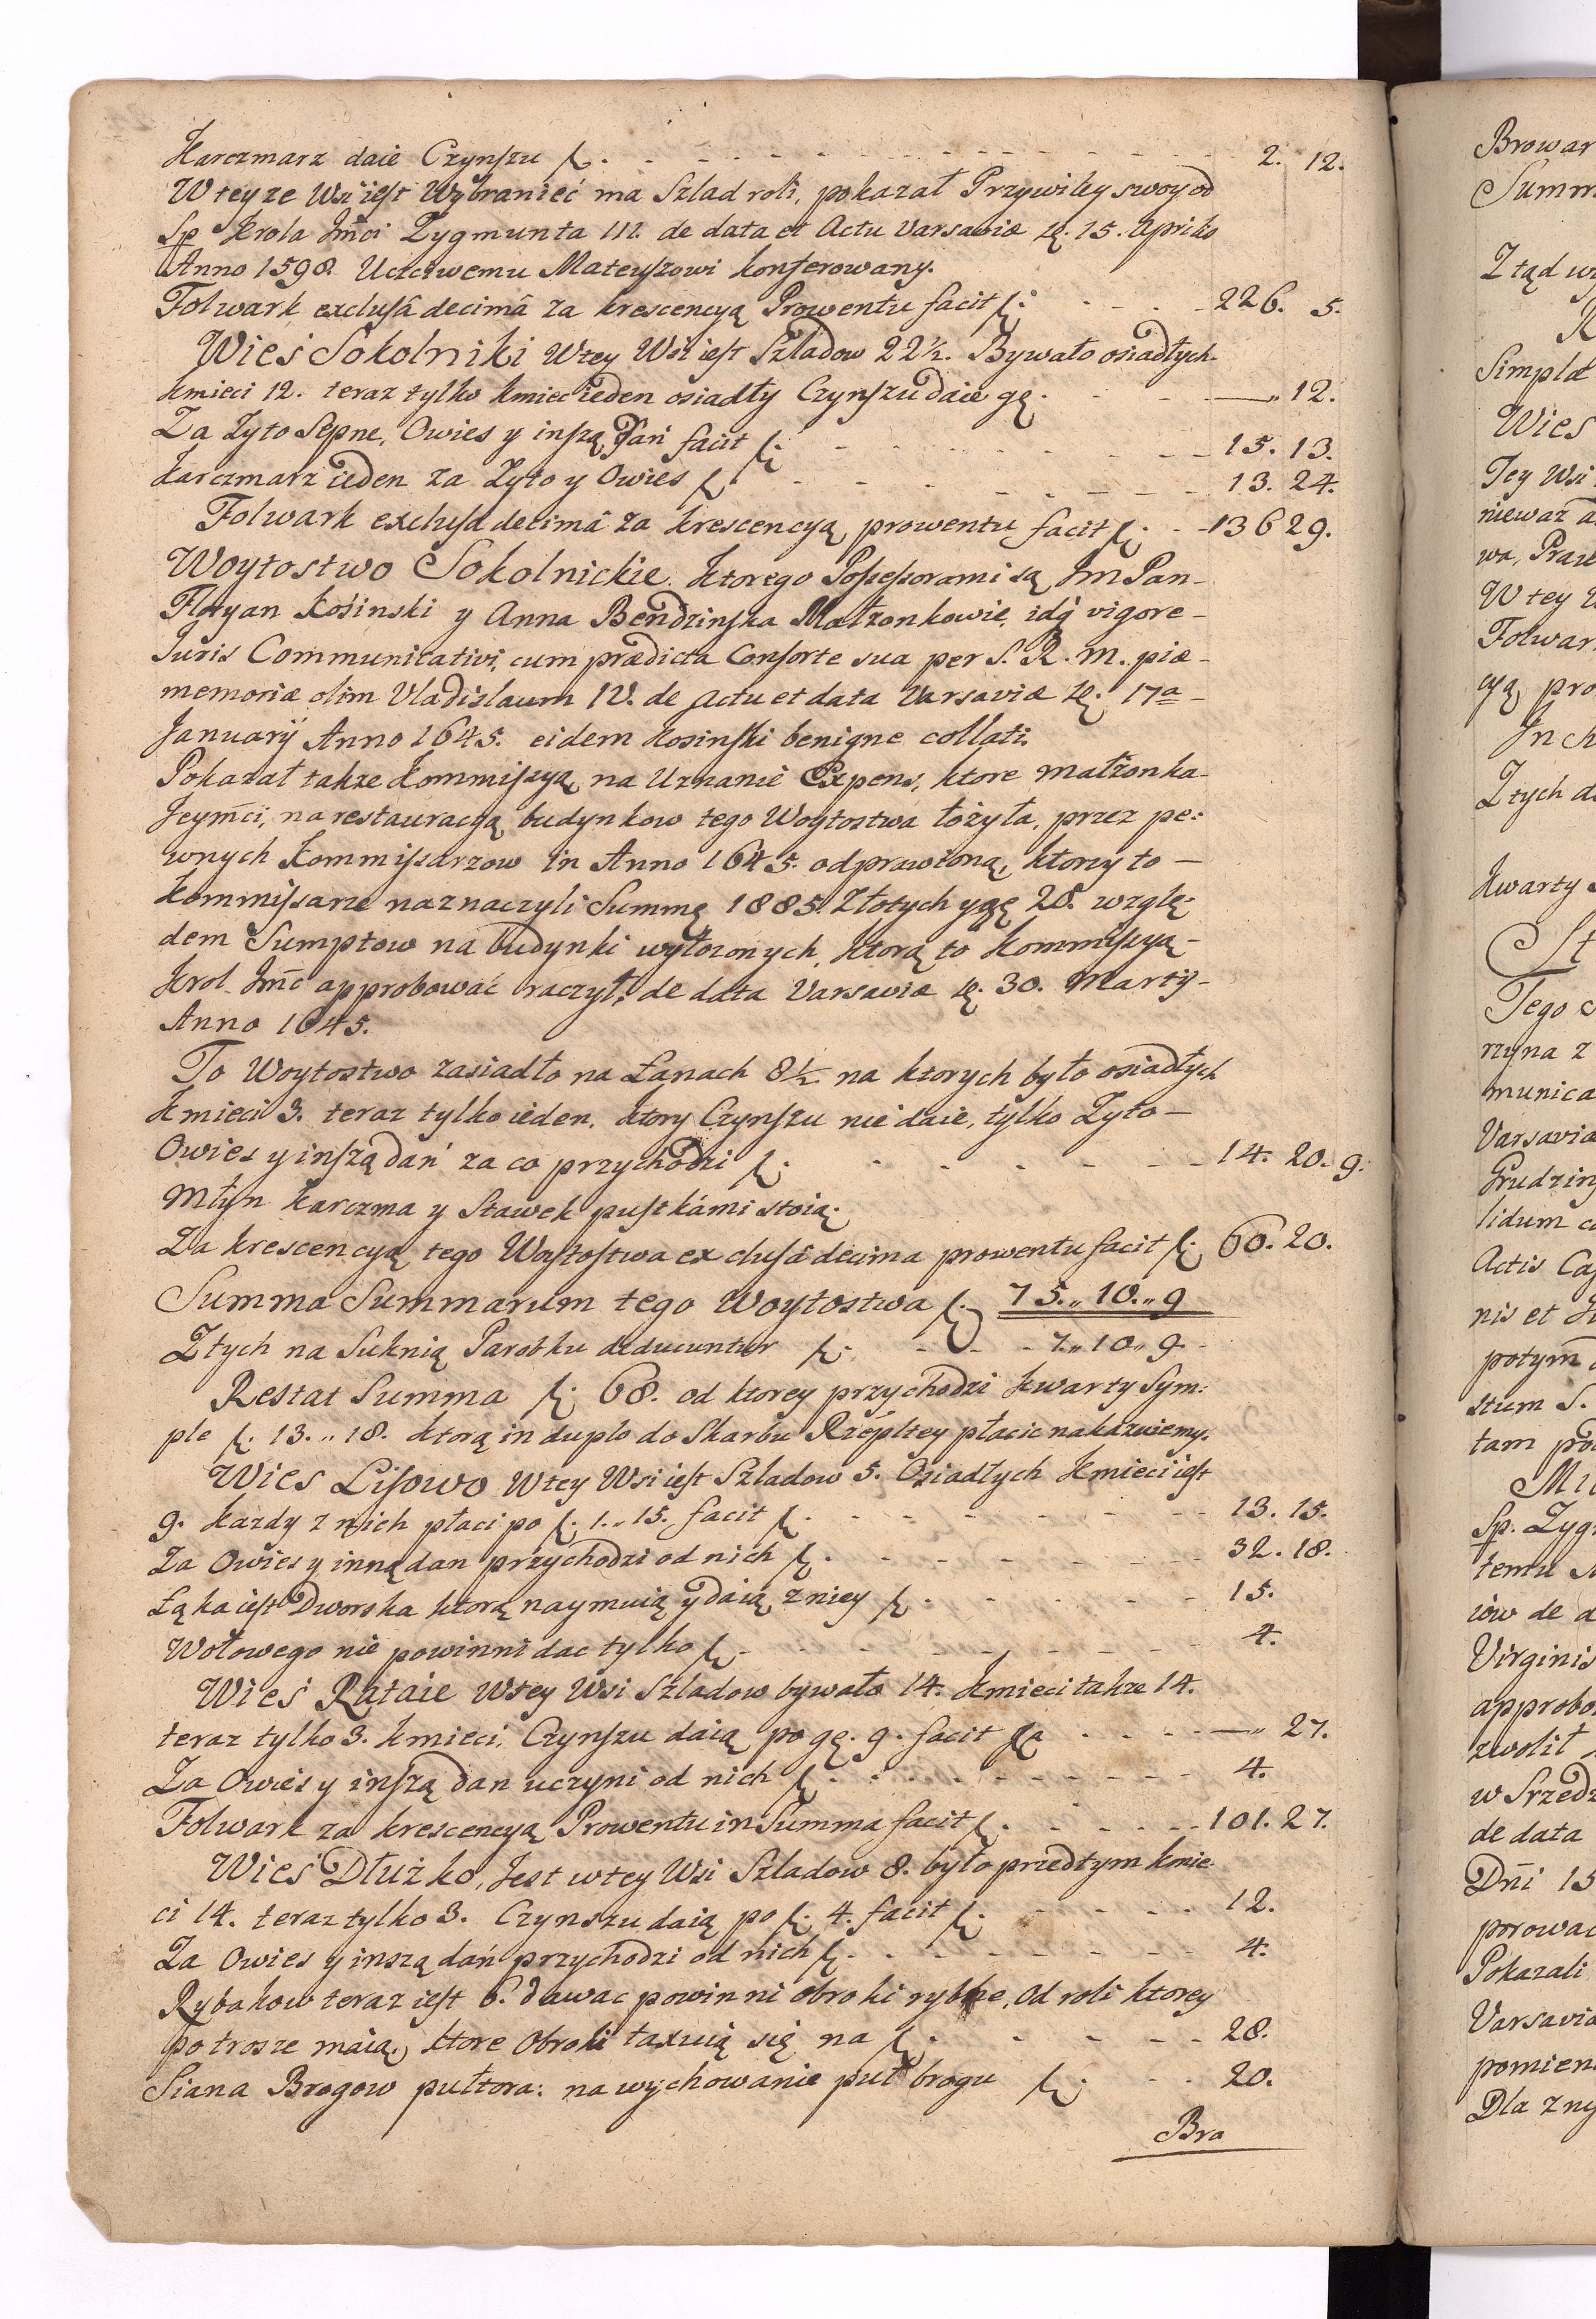 Karczmarz daie Czynszu f. - - - 2. 12.
W teyze Wsi iest Wybraniec ma Szlad roli, pokazał Przywiley swoy od
Sp Krola Jm̃ci Zygmunta III. de data et Actu Varsaviæ 15. Aprilis
Anno 1598. Uczciwemu Mateuszowi konferowany.
Folwark exclusâ decimâ za krescencyą Prowentu facit f. - - - 226. 5.
Wieś Sokolniki W tey Wsi iest Szladow 22½. Bywało osiadłych
kmieci 12. teraz tylko kmiec ieden osiadły Czynszu daie gę. - - - —„ 12.
Za Zyto Sepne, Owies y inszą dań facit f. - - - 15. 13.
Karczmarz ieden za Zyto y Owies f. - - - 13. 24.
Folwark exclusa decimâ za krescencyą prowentu facit f. - - 136 29.
Woytostwo Sokolnickie. Ktorego Possessorami są Jm Pan-
Floryan Kosinski y Anna Bendzinska Małzonkowie, idq vigore-
Juris Communicativi, cum prædicta Consorte sua per S. R. M. piæ-
memoriæ olim Vladislaum IV. de actu et data Varsaviæ 17a-
January Anno 1645. eidem Kosinski benigne collati.
Pokazał takze Kommissyą na Uznanie Expens, ktore małzonka-
Jeym̃ci, na restauracyą budynkow tego Woytostwa łożyła, przez pe:
wnych Kommissarzow in Anno 1645. odprawioną, ktorzy to —
Kommissarze naznaczyli Summę 1885. Złotych y gę 28. wzglę:
dem Sumptow na budynki wyłozonych, ktorą to Kommissyą-
Krol Jm̃c approbować raczył, de data Varsaviæ 30. Martij-
Anno 1645.
To Woytostwo zasiadło na Łanach 8½. na ktorych było osiadłych
Kmieci 3. teraz tylko ieden, ktory Czynszu nie daie, tylko Zyto —
Owies y inszą dań za co przychodzi f. - - - 14. 20. 9.
Młyn karczma y Stawek pustkámi stoią.
Za krescencyą tego Woytostwa exclusâ decima prowentu facit f. 60. 20.
Summa Summarum tego Woytostwa f. 75.„ 10.„ 9
Z tych na Suknią Parobku deducuntur f. - - - 7.„ 10„ 9.
Restat Summa f. 68. od ktorey przychodzi kwarty Sym:
ple f. 13.„ 18. ktorą in duplo do Skarbu Rzepltey płacic nakazuiemy.
Wies Lisowo W tey Wsi iest Szladow 5. Osiadłych Kmieci iest
9. kazdy z nich płaci po f. 1.„ 15. facit f. - - - 13. 15.
Za Owies y inną dan przychodzi od nich f. - - - 32. 18.
Łąka iest Dworska ktorą naymuią y daią z niey f. - - - 15.
Wołowego nie powinni dac tylko f. - - - 4.
Wieś Rataie W tey Wsi Szladow bywało 14. Kmieci takze 14.
teraz tylko 3. kmieci, Czynszu daią po gę. 9. facit - - - —„ 27.
Za Owies y inszą dan uczyni od nich f. - - - 4.
Folwark za krescencyą Prowentu in Summa facit f. - - - 101. 27.
Wieś Dłużko, Jest w tey Wsi Szladow 8. było przedtym kmie
ci 14. teraz tylko 3. Czynszu daią po f. 4. facit f. - - - 12.
Za Owies y inszą dań przychodzi od nich f. - - - 4.
Rybakow teraz iest 6. dawac powinni obroki rybne, od roli ktorey
po trosze maią, ktore Obroki taxuią się na f. - - - 28.
Siana Brogow pułtora: na wychowanie puł brogu f. - - - 20.
Bra
Browar
Summ
Z tąd
Simplæ
Wies
Tey Wsi
niewaz
wa,
W tey
Folwar
cyą pro
In
Z tych
Kwarty
St
Tego
rzyna z
munica
Varsavia
Grudzin
lidum
Actis Ca
nis et
potym
stum S.
tam
Sp. Zyg
temu
iow de
Virginis
approbo
zwolił
w Srzed
de data
Dni 15
porowac
Pokazali
Varsavia
pomien
Dla zny